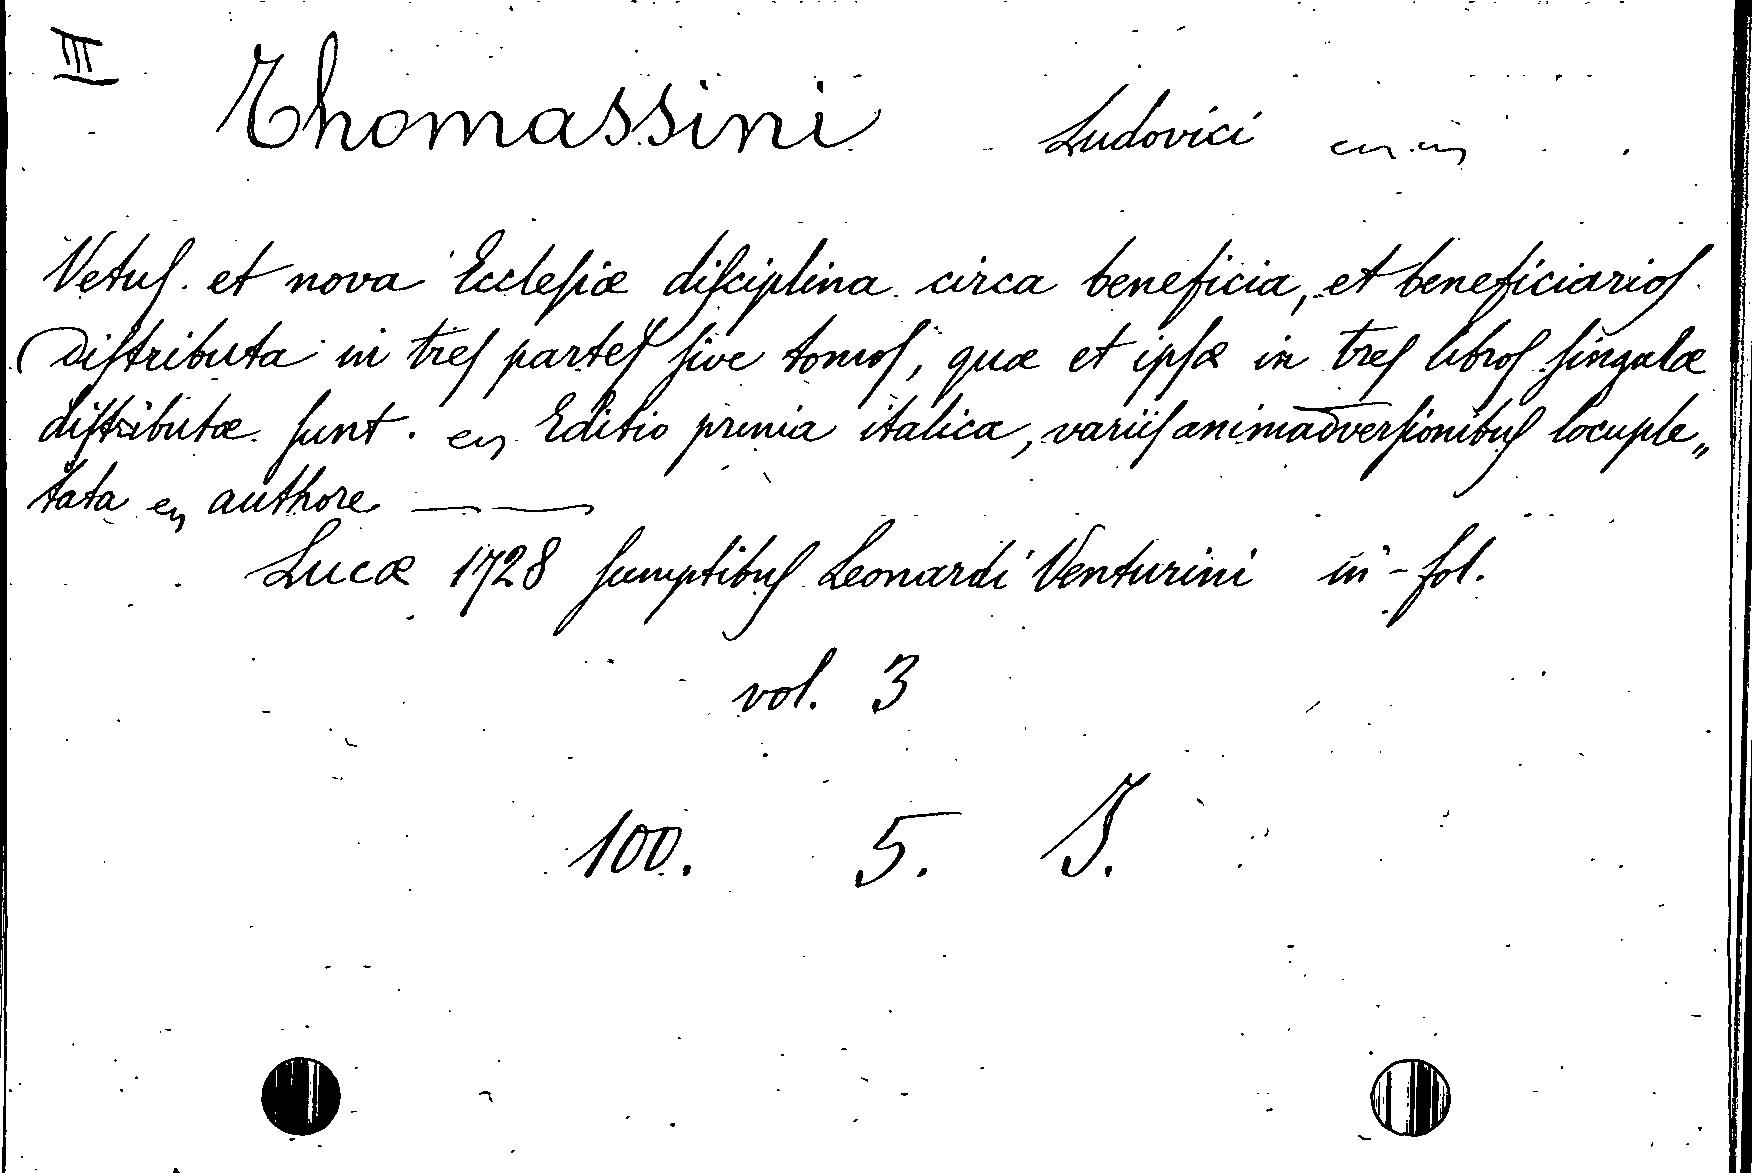 III
Thomassini Ludovici
Vetus et nova Ecclesiæ disciplina circa beneficia, et beneficiarios
distributa in tres partes sive tomos, quæ et ipsæ in tres libros singulæ
distributæ sunt. Editio prima italica, variis animadversionibus locuple„
tata authore
Lucæ 1728 sumptibus Leonardi Venturini in-fol.
vol. 3
100. 5. J.